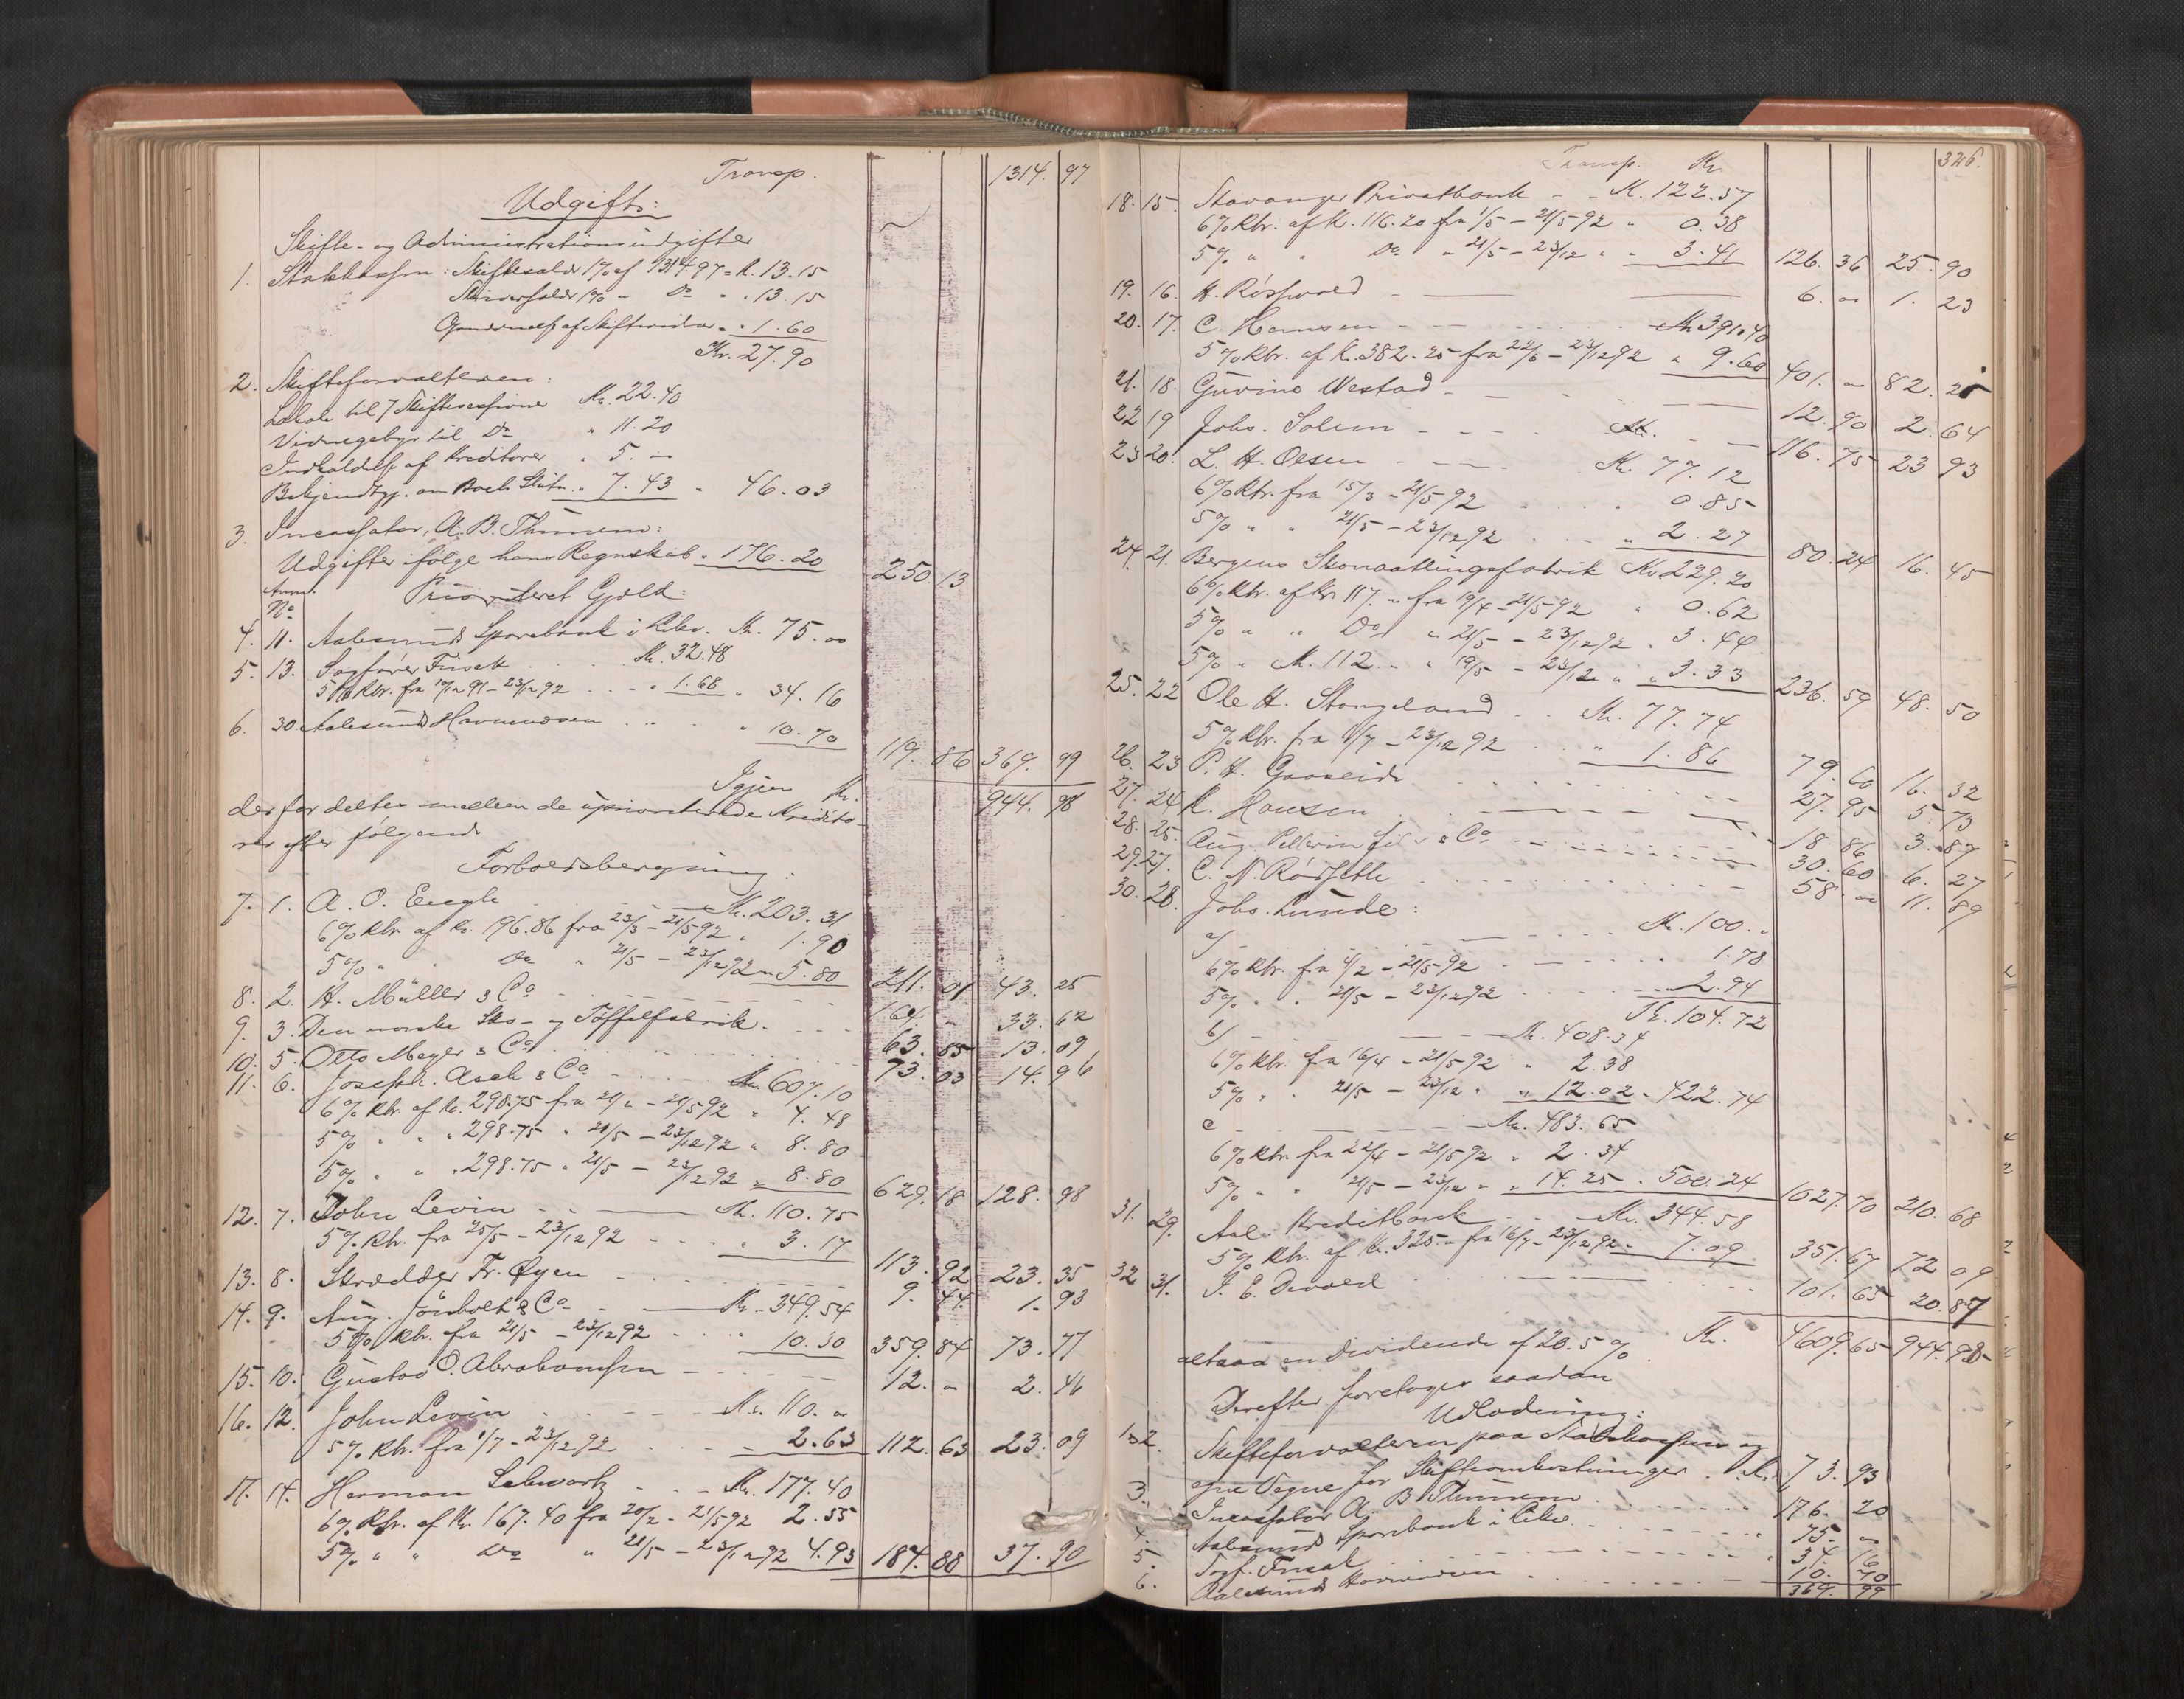 Transp. 1314. 97
Udgift:
Skifte- og Administrationsudgifter
1. Statskassen: Skiftesalær 1% af 1314.97 = K. 13.15
Skriversalær 1% - Do " " 13.15
af Skifteridr " " 1.60
Kr. 27.90
2. Skifteforvalteren:
Lokale til 7 Skiftesessioner Kr. 22.40
Vidnegebyr til Do " 11.20
Indkaldelse af Kreditorer " 5. "
Bekjendtgj. om Boets Slutn. " 7.43 " 46.03
3. Incassator, A. B. Thinem:
Udgifter ifølge hans Regnskab " 176.20 250 13
Anm. No
Prioriteret Gjæld:
4. 11. Aalesunds Sparebank i Likv. Kr. 75. "
5. 13. Sagfører Frisak Kr. 32.48
5% Rtr. fra 10/12 91 - 23/12 92 " 1.68 " 34.16
6. 30. Aalesunds Havnevæsen " 10.70 119. 86 369. 99
Igjen Kr. 944. 98
der fordeles mellem de uprioriterede Kredito-
rer efter følgende
Forholdsberegning:
7. 1. A. O. Engh Kr. 203.31
6% Rtr. af Kr. 196.86 fra 23/3 - 21/5 92 " 1.90
5% " Do " 21/5 - 23/12 92 " 5.80 211. 01 43. 25
8. 2. H. Müller & Co 164 " 33. 62
9. 3. Den norske Sko- og Tøffelfabrik 63. 85 13. 09
10. 5. Otto Meyer & Co 73. 03 14. 96
11. 6. Joseph. Asch & Co Kr. 607.10
6% Rtr. af Kr. 298.75 fra 21/2 - 21/5 92 " 4.48
5% " " " 298.75 " 21/5 - 23/12 92 " 8.80
5% " " " 298.75 " 21/5 - 23/12 92 " 8.80 629. 18 128. 98
12. 7. John Levin Kr. 110.75
5% Rtr. fra 25/5 - 23/12 92 " 3.17 113. 92 23. 35
13. 8. Skrædder Fr. Øyen 9. 44 1. 93
14. 9. Aug. Jönholt & Co Kr. 349.54
5% Rtr. fra 21/5 - 23/12 92 10.30 359. 84 73. 77
15. 10. Gustav O. Abrahamsen 12. " 2. 46
16. 12. John Levin Kr. 110. "
5% Rtr. fra 1/7 - 23/12 92 2.63 112. 63 23. 09
17. 14. Herman Schwartz Kr. 177.40
6% Rtr. af Kr. 167.40 fra 20/2 - 21/5 92 2.55
5% " " Do " 21/5 - 23/12 92 4.93 184. 88 37. 90
Transp. Kr. 326.
18. 15. Stavanger Privatbank Kr. 122.57
6% Rtr. af Kr. 116.20 fra 1/5 - 21/5 92 " 0.38
5% " " Do " 21/5 - 23/12 " " 3.41 126. 36 25. 90
19. 16. H. Røsvold 6. " 1. 23
20. 17. C. Hansen Kr. 391.40
5% Rtr. af K. 382.25 fra 22/6 - 23/12 92 " 9.60 401. " 82. 21
21. 18. Guvine Westad 12. 90 2. 64
22 19 Johs. Solem 116. 75 23 93
23 20. L. H. Olsen Kr. 77.12
6% Rtr. fra 15/3 - 21/5 92 0.85
5% " " 21/5 - 23/12 92 " 2.27 80. 24 16. 45
24. 21. Bergens Skonaatlingsfabrik Kr. 229.20
6% Rtr. af Kr. 117. " fra 19/4 - 21/5 92 " 0.62
5% " " Do " 21/5 - 23/12 92 " 3.44
5% " Kr. 112. " " 19/5 - 23/12 " " 3.33 236. 59 48. 50
25. 22 Ole H. Stangeland Kr. 77.74
5% Rtr. fra 1/7 - 23/12 92 " 1.86 79. 60 16. 32
26. 23 P. H. Gaaseide 27. 95 5. 73
27. 24 K. Hansen 18. 86 3. 87
28. 25. Aug. Pellerin fils & Co 30. 60 6. 27
29. 27. C. N. Rødsethe 58. " 11. 89
30. 28. Johs. Lunde:
a/ Kr. 100. "
6% Rtr. fra 4/2 - 21/5 92 1.78
5% " " 21/5 - 23/12 92 2.94
Kr. 104.72
b/ Kr. 408.34
6% Rtr. fra 16/4 - 21/5 92 " 2.38
5% " " 21/5 - 23/12 " " 12.02 " 422.74
c Kr. 483.65
6% Rtr. fra 22/4 - 21/5 92 " 2.34
5% " " 21/5 - 23/12 " " 14.25 " 500.24 1027. 70 210. 68
31. 29. Aal. Kreditbank Kr. 344.58
5% Rtr. af Kr. 325. " fra 16/7 - 23/12 92 " 7.09 351. 67 72 09
32 31. I. E. Devold 101. 65 20. 87
Kr. 4609. 65 944. 98
altsaa en Dividende af 20.5%
Derefter foretages saadan
Udlodning:
1 2. Skifteforvalteren paa Statskassens og
egne Vegne for Skifteomkostninger Kr. 73. 93
3. Incassator A. B. Thinem 176. 20
4. Aalesunds Sparebank i Likv. 75. "
5. Sagf. Frisak 34. 16
6. Aalesunds Havnevæsen 10. 70
369. 99